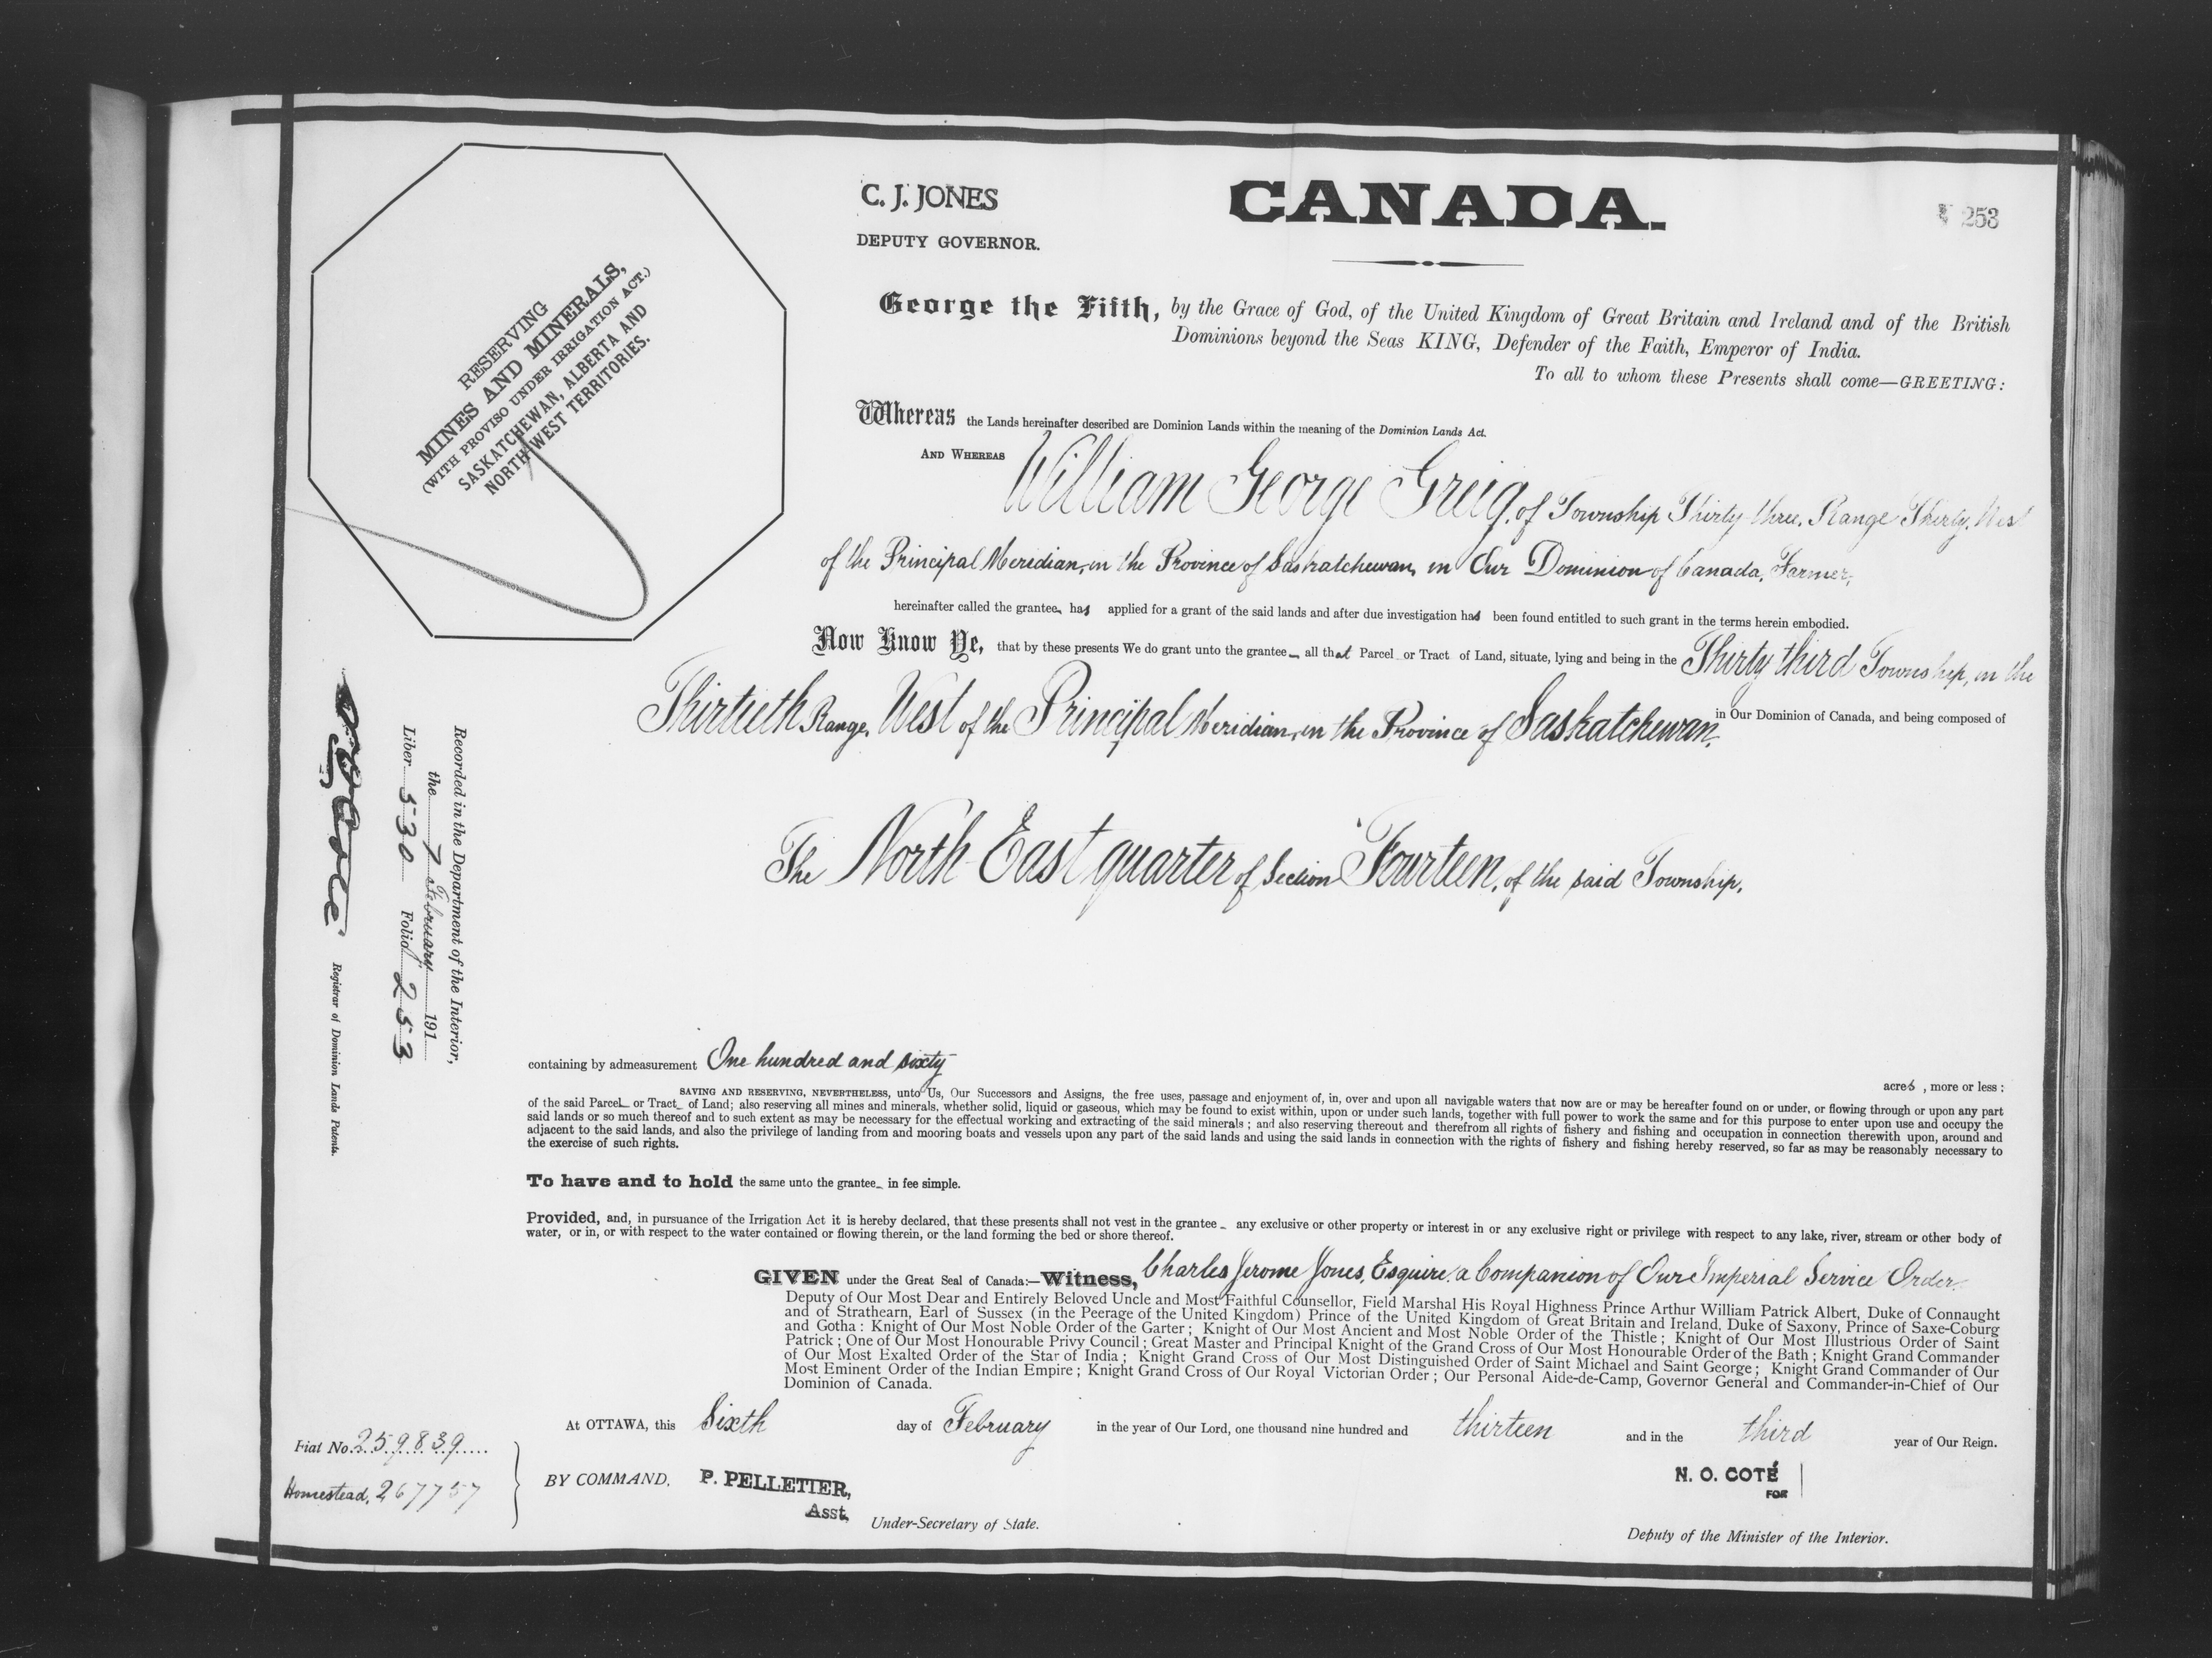 C. J. JONES
DEPUTY GOVERNOR.
CANADA.
253
RESERVING
MINES AND MINERALS,
(WITH PROVISO UNDER IRRIGATION ACT.)
SASKATCHEWAN, ALBERTA AND
NORTH WEST TERRITORIES.
George the Fifth, by the Grace of God, of the United Kingdom of Great Britain and Ireland and of the British
Dominions beyond the Seas KING, Defender of the Faith, Emperor of India.
To all to whom these Presents shall come—GREETING:
Whereas the Lands hereinafter described are Dominion Lands within the meaning of the Dominion Lands Act.
AND WHEREAS William George Greig, of Township Thirty three, Range Thirty, West
of the Principal Meridian, in the Province of Saskatchewan, in Our Dominion of Canada, Farmer,
hereinafter called the grantee has applied for a grant of the said lands and after due investigation has been found entitled to such grant in the terms herein embodied.
Now Know Ye, that by these presents We do grant unto the grantee all that Parcel or Tract of Land, situate, lying and being in the Thirty third Township, in the
Thirtieth Range, West of the Principal Meridian, in the Province of Saskatchewan, in Our Dominion of Canada, and being composed of
The North East quarter of Section Fourteen, of the said Township.
Recorded in the Department of the Interior,
the 7 February 191
Liber 530 Folio 253
Registrar of Dominion Lands Patents.
containing by admeasurement One hundred and sixty acres, more or less;
SAVING AND RESERVING, NEVERTHELESS, unto Us, Our Successors and Assigns, the free uses, passage and enjoyment of, in, over and upon all navigable waters that now are or may be hereafter found on or under, or flowing through or upon any part
of the said Parcel or Tract of Land; also reserving all mines and minerals, whether solid, liquid or gaseous, which may be found to exist within, upon or under such lands, together with full power to work the same and for this purpose to enter upon use and occupy the
said lands or so much thereof and to such extent as may be necessary for the effectual working and extracting of the said minerals; and also reserving thereout and therefrom all rights of fishery and fishing and occupation in connection therewith upon, around and
adjacent to the said lands, and also the privilege of landing from and mooring boats and vessels upon any part of the said lands and using the said lands in connection with the rights of fishery and fishing hereby reserved, so far as may be reasonably necessary to
the exercise of such rights.
To have and to hold the same unto the grantee in fee simple.
Provided, and, in pursuance of the Irrigation Act it is hereby declared, that these presents shall not vest in the grantee any exclusive or other property or interest in or any exclusive right or privilege with respect to any lake, river, stream or other body of
water, or in, or with respect to the water contained or flowing therein, or the land forming the bed or shore thereof.
GIVEN under the Great Seal of Canada:—Witness, Charles Jerome Jones, Esquire, a Companion of Our Imperial Service Order.
Deputy of Our Most Dear and Entirely Beloved Uncle and Most Faithful Counsellor, Field Marshal His Royal Highness Prince Arthur William Patrick Albert, Duke of Connaught
and of Strathearn, Earl of Sussex (in the Peerage of the United Kingdom) Prince of the United Kingdom of Great Britain and Ireland, Duke of Saxony, Prince of Saxe-Coburg
and Gotha: Knight of Our Most Noble Order of the Garter; Knight of Our Most Ancient and Most Noble Order of the Thistle; Knight of Our Most Illustrious Order of Saint
Patrick; One of Our Most Honourable Privy Council; Great Master and Principal Knight of the Grand Cross of Our Most Honourable Order of the Bath; Knight Grand Commander
of Our Most Exalted Order of the Star of India; Knight Grand Cross of Our Most Distinguished Order of Saint Michael and Saint George; Knight Grand Commander of Our
Most Eminent Order of the Indian Empire; Knight Grand Cross of Our Royal Victorian Order; Our Personal Aide-de-Camp, Governor General and Commander-in-Chief of Our
Dominion of Canada.
At OTTAWA, this Sixth day of February in the year of Our Lord, one thousand nine hundred and thirteen and in the third year of Our Reign.
Fiat No. 259839
Homestead, 267757
BY COMMAND,
P. PELLETIER,
Asst.
Under-Secretary of State.
N. O. COTÉ
FOR
Deputy of the Minister of the Interior.